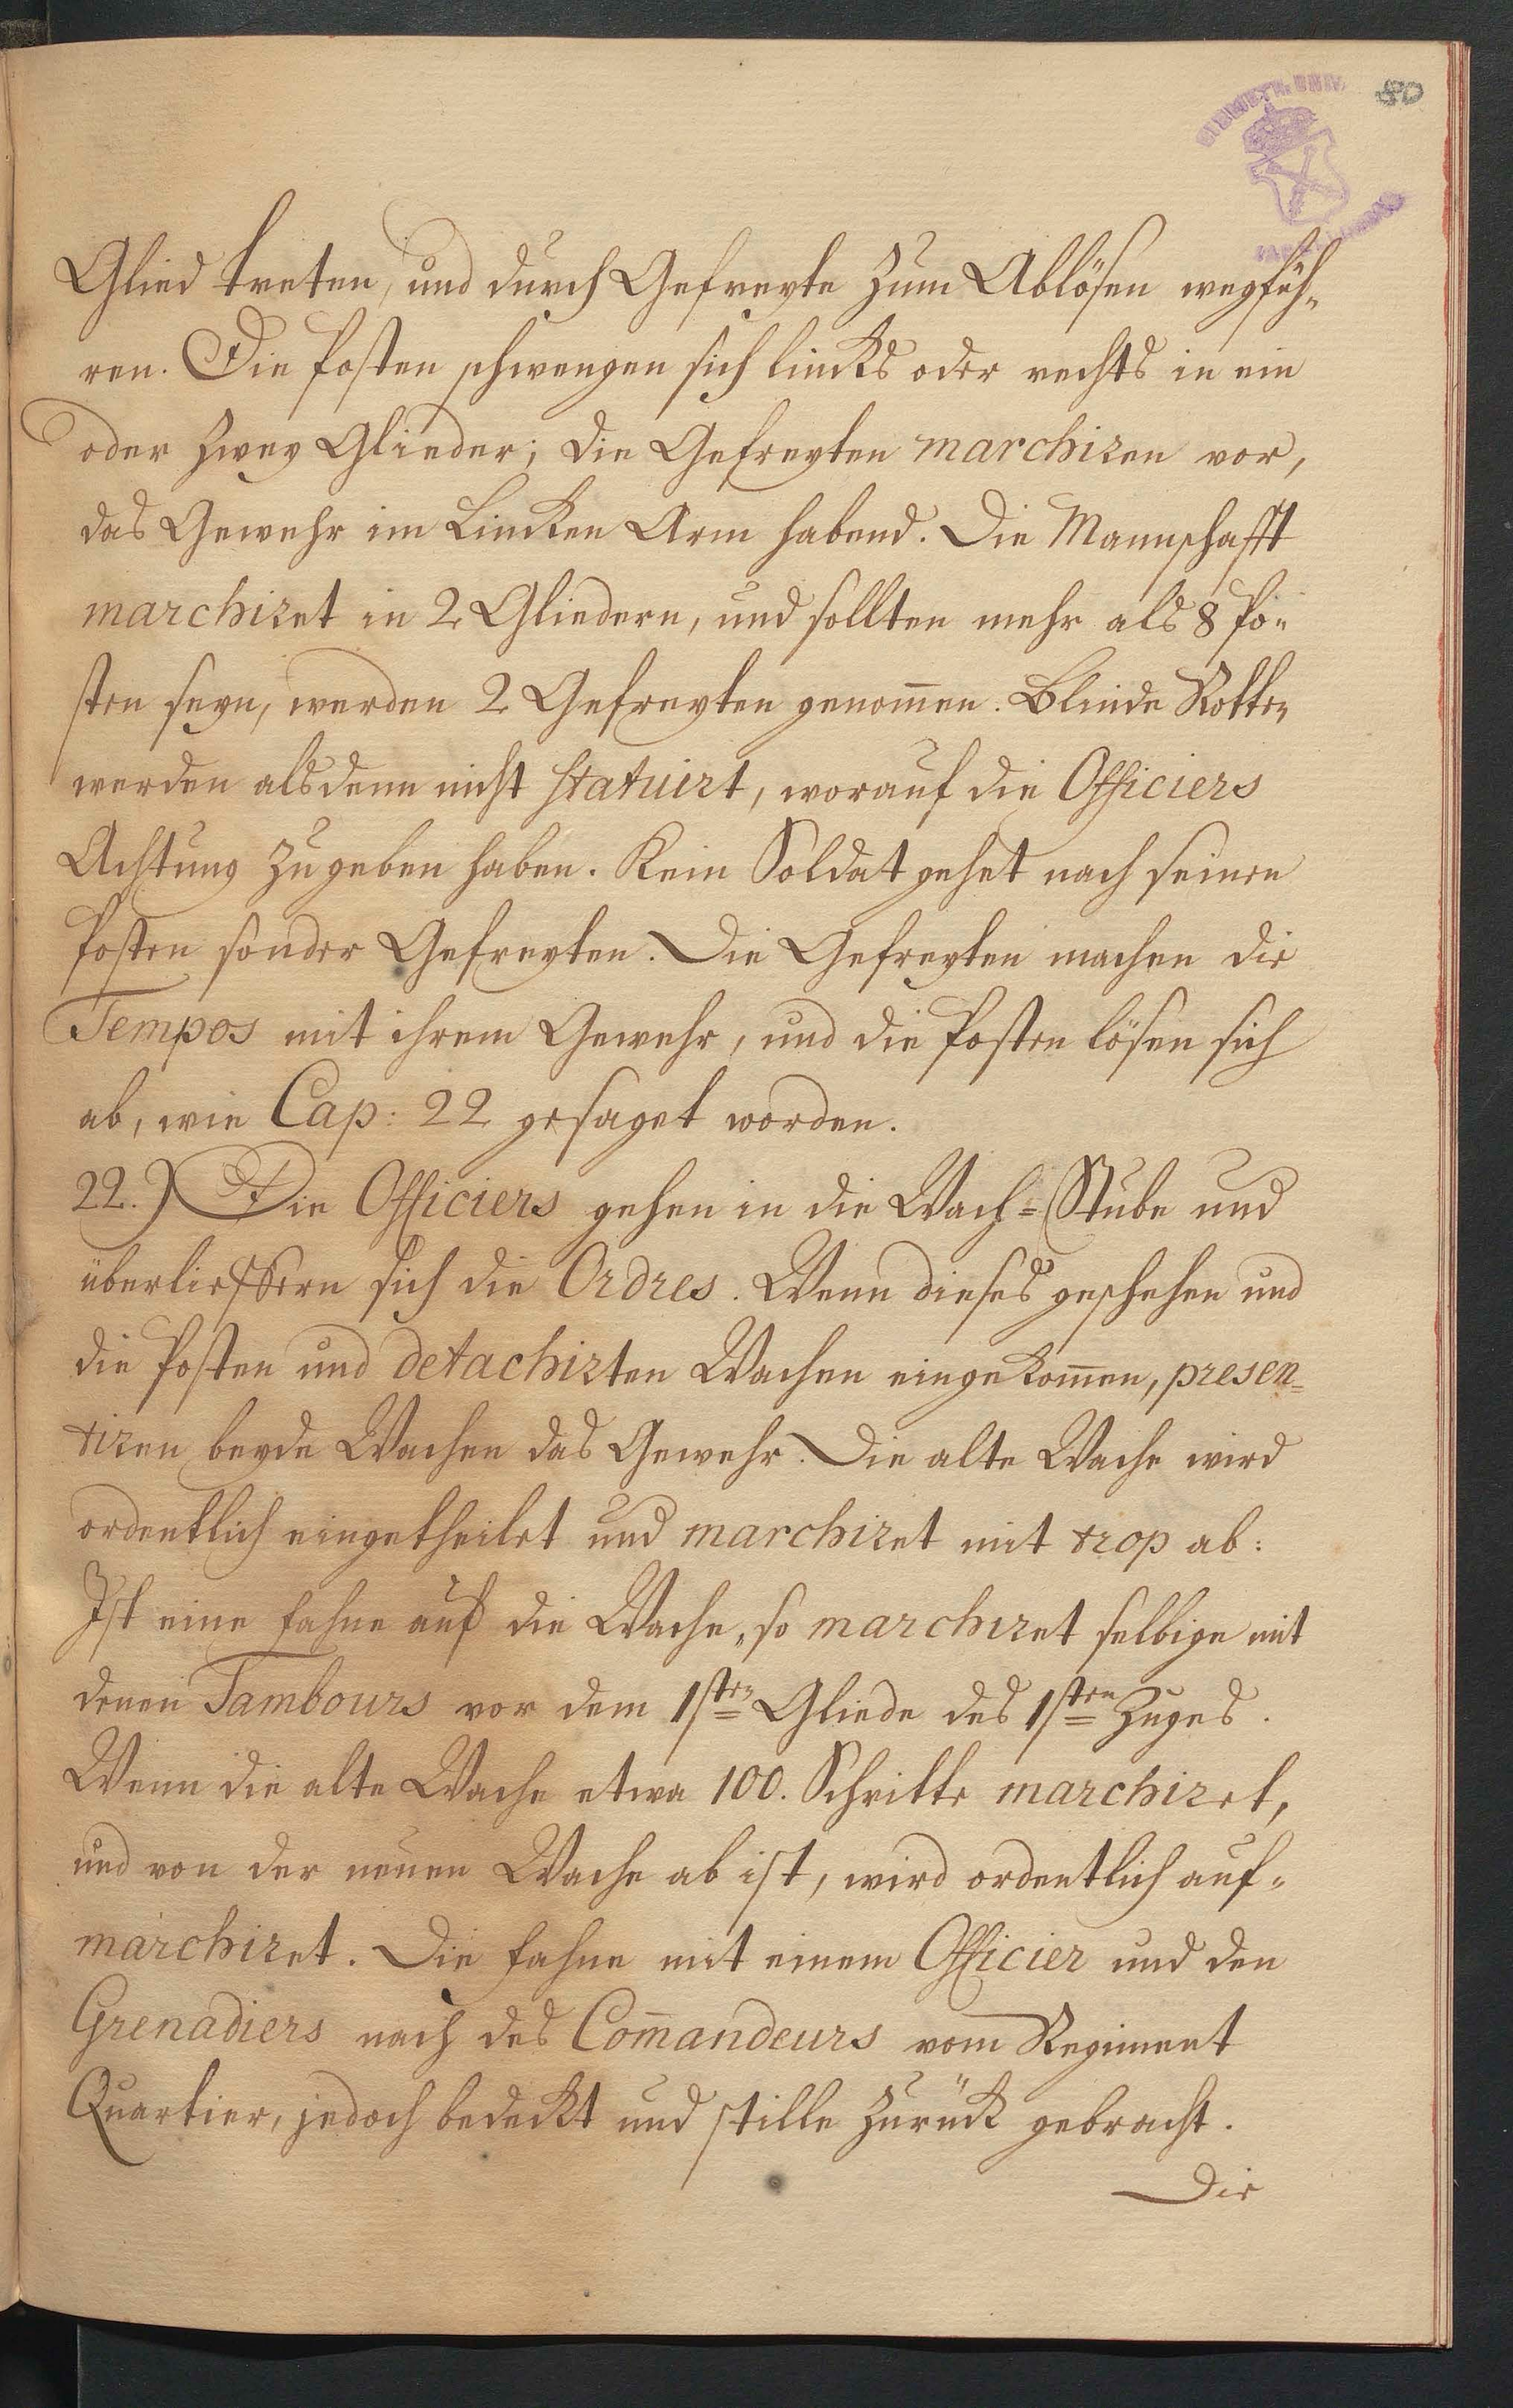 80
Glied treten, und durch Gefreyte zum Ablösen wegfüh-
ren. Die Posten schwengen sich lincks oder rechts in ein
oder zwey Glieder; die Gefreyten marchiren vor,
das Gewehr im Lincken Arm habend. Die Mannschafft
marchiret in 2 Gliedern, und sollten mehr als 8 Po-
sten seyn, werden 2 Gefreyten genom̄en. Blinde Rotten
werden alsdenn nicht statuirt, worauf die Officiers
Achtung zugeben haben. Kein Soldat gehet nach seinen
Posten sonder Gefreyten. Die Gefreyten machen die
Tempos mit ihrem Gewehr, und die Posten lösen sich
ab, wie Cap: 22 gesaget worden.
22.) Die Officiers gehen in die Wach-Stube und
überlieffern sich die Ordres. Wenn dieses geschehen und
die Posten und detachirten Wachen eingekom̄en, presen-
tiren beyde Wachen das Gewehr. Die alte Wache wird
ordentlich eingetheilet und marchiret mit trop ab:
Ist eine Fahne auf die Wache, so marchiret selbige mit
denen Tambours vor dem 1sten Gliede des 1sten Zuges.
Wenn die alte Wache etwa 100. Schritte marchiret,
und von der neuen Wache ab ist, wird ordentlich auf-
marchiret. Die Fahne mit einem Officier und den
Grenadiers nach des Com̄andeurs vom Regiment
Quartier, jedoch bedeckt und stille zurück gebracht.
Die